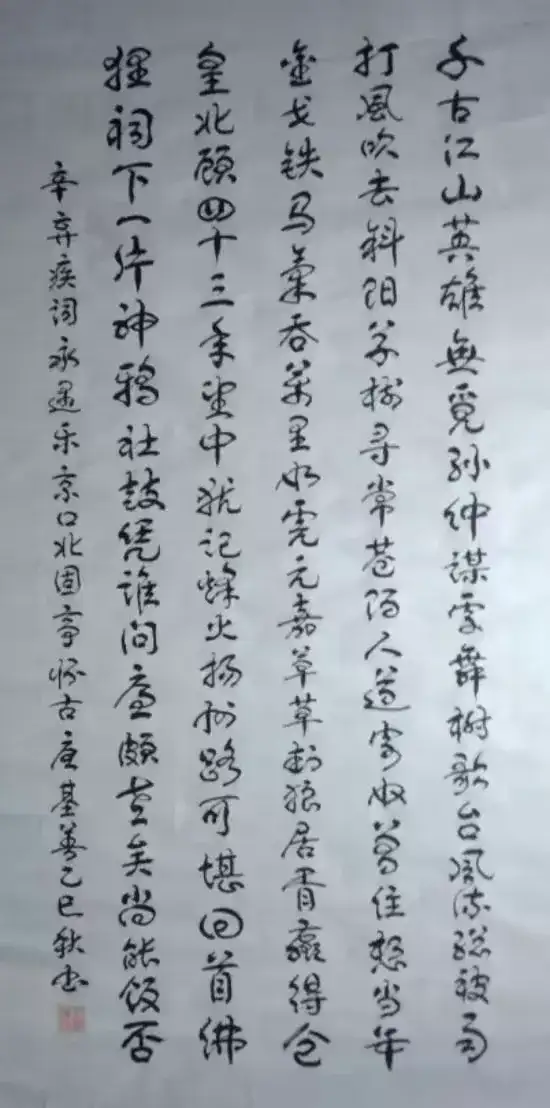 千古江山英雄無覓孙仲谋处舞榭歌台风流总被雨
打風吹去斜阳草树寻常巷陌人道寄奴曾住想当年
金戈铁马氣吞萬里如虎元嘉草草封狼居胥赢得仓
皇北顾四十三年望中犹记烽火扬州路可堪回首佛
狸祠下一片神鸦社鼓凭谁问廉颇老矣尚能饭否
辛弃疾词永遇乐京口北固亭怀古 基善乙巳秋书